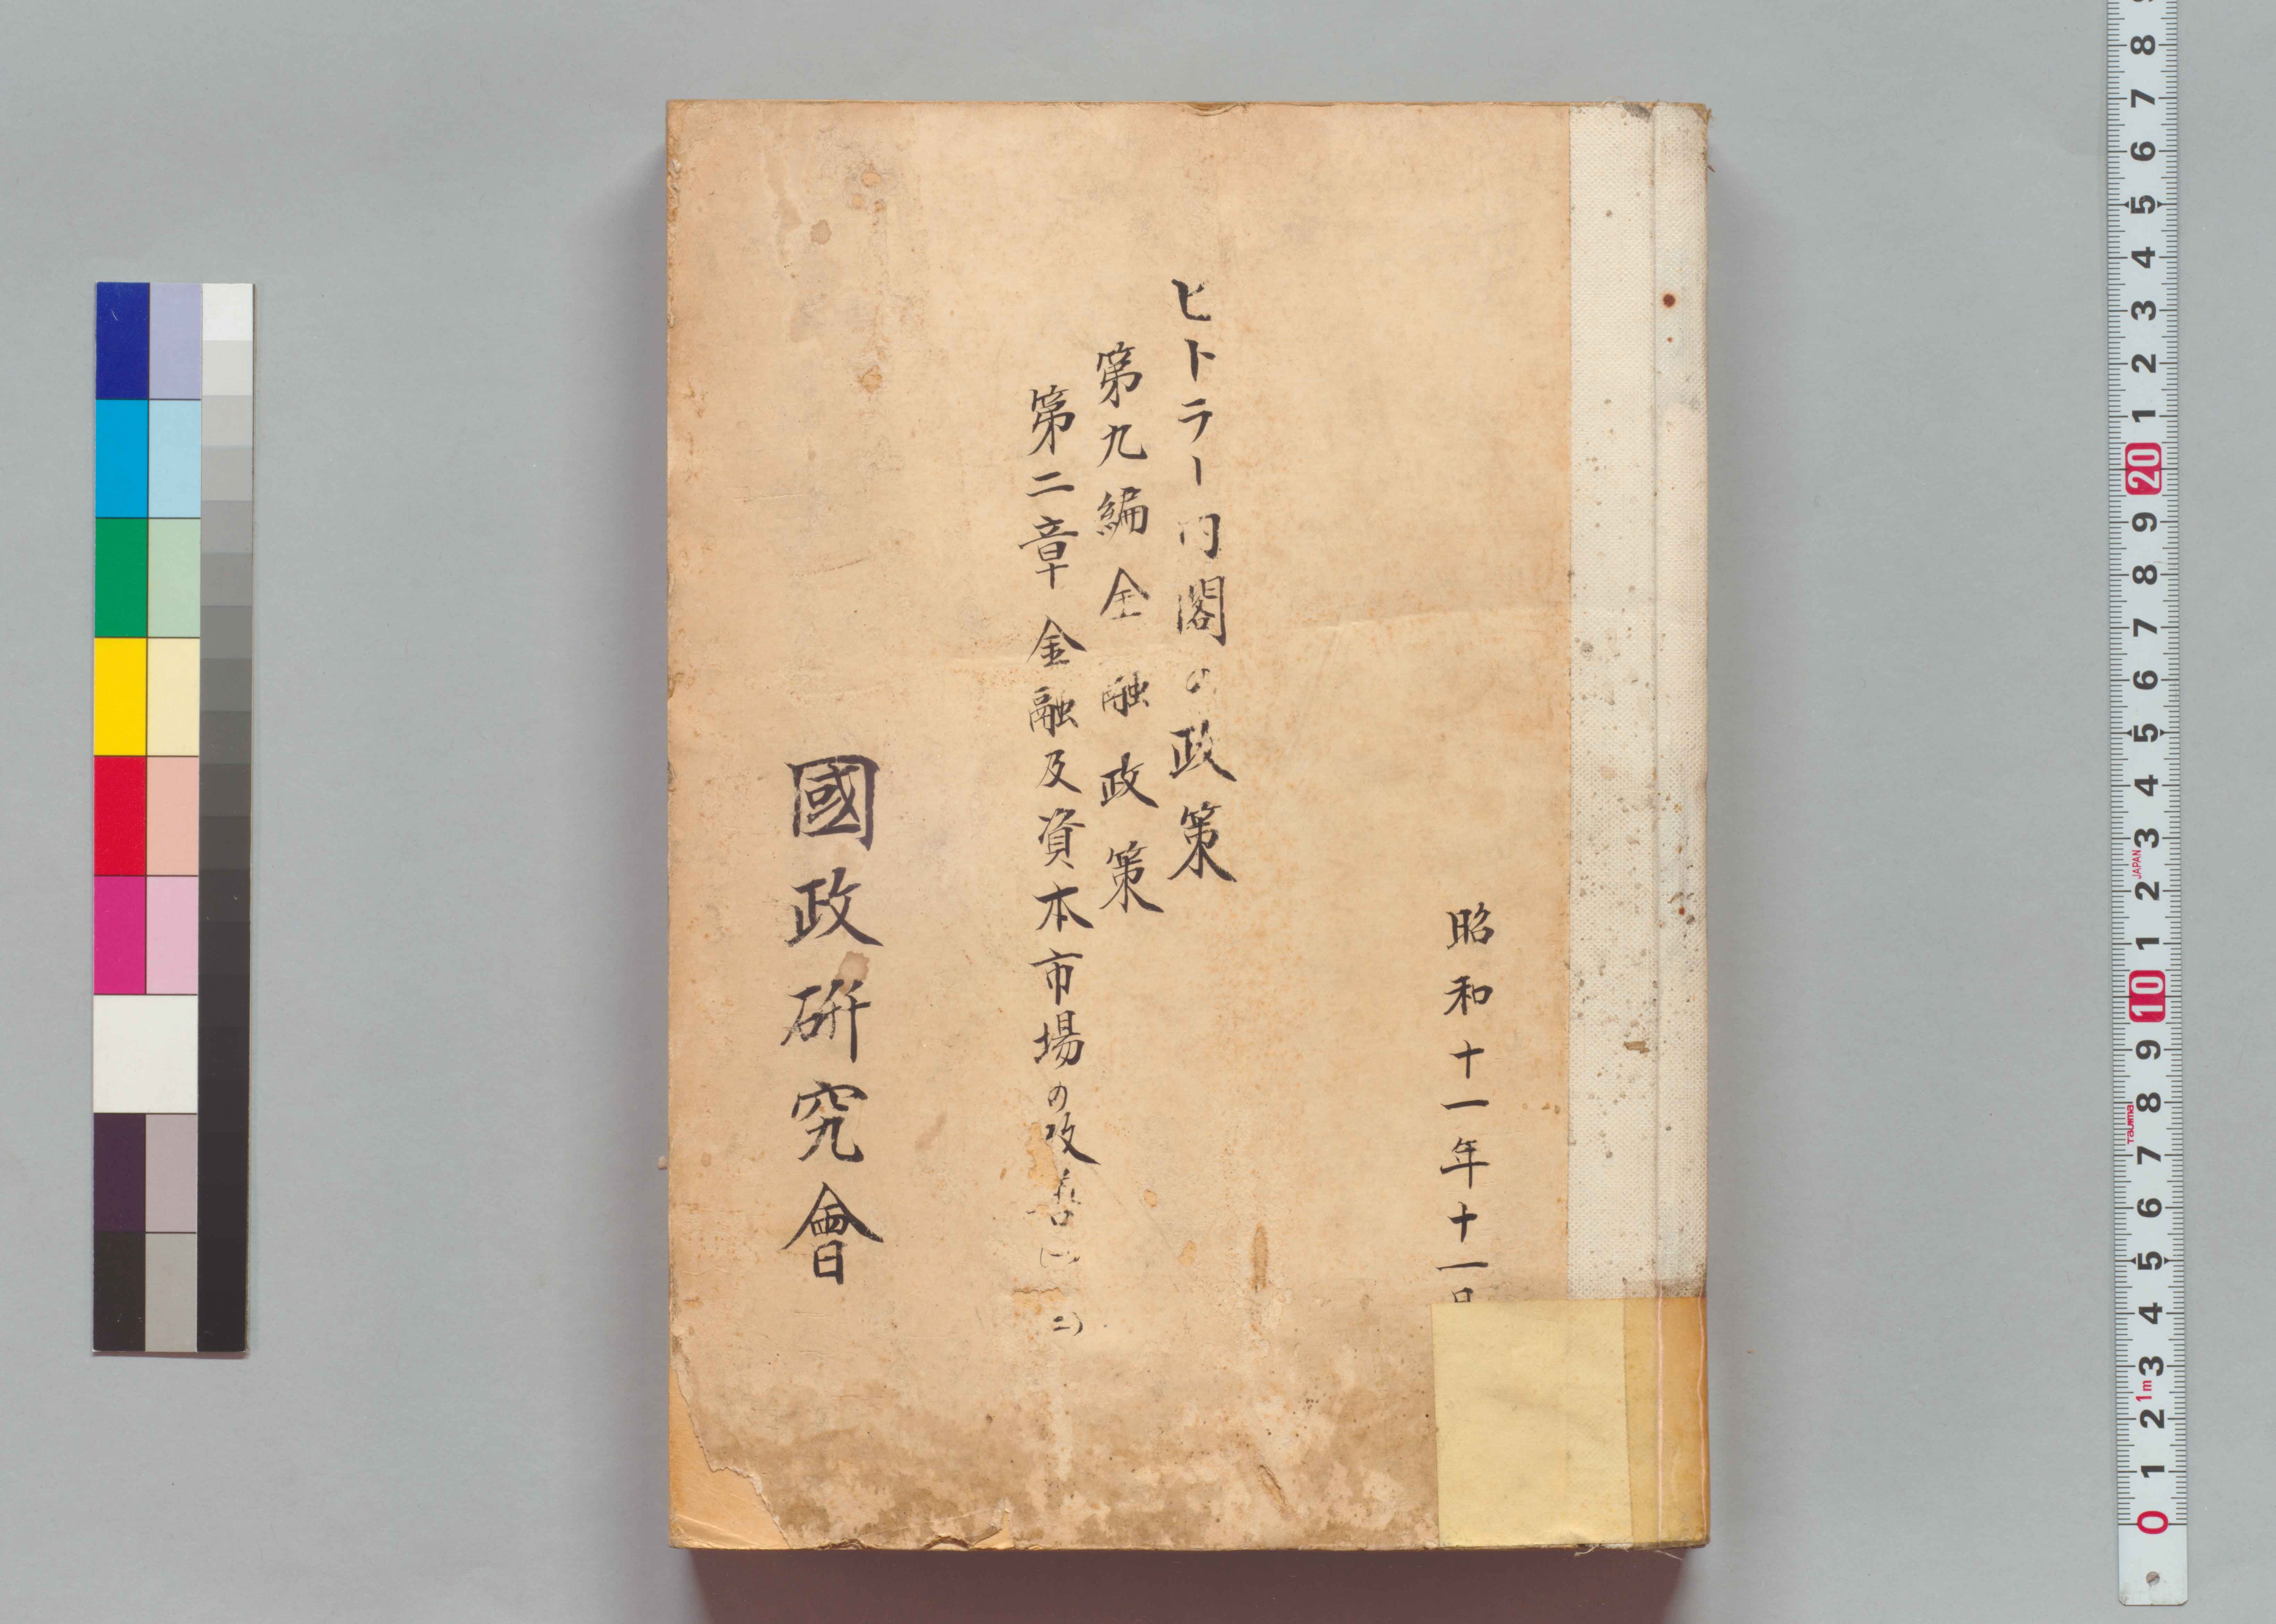 昭和十一年十一月
ヒトラー内閣の政策
第九編 金融政策
第二章 金融及資本市場の改善(一
二)
國政研究會
8
7
6
5
4
3
2
1
20
9
8
7
6
5
4
3
JAPAN
2
1
10
9
8
Tajima
7
6
5
4
3
1m
2
1
0